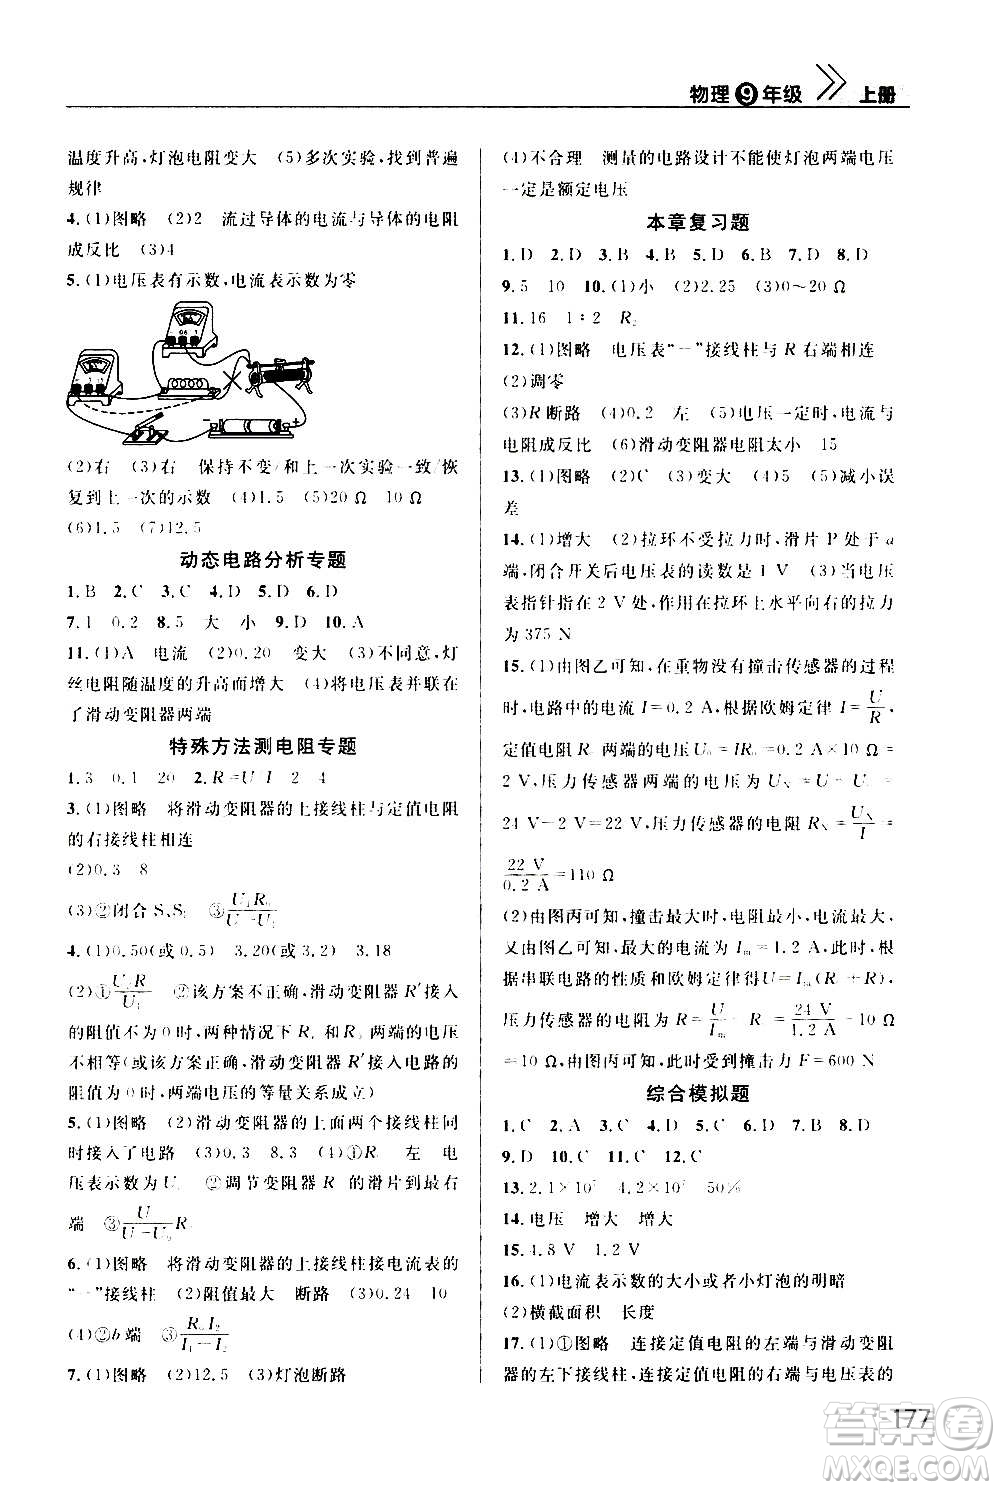 物理⑨年级 上册
温度升高,灯泡电阻变大 (5)多次实验,找到普遍
规律
4.(1)图略 (2)2 流过导体的电流与导体的电阻
成反比 (3)4
5.(1)电压表有示数,电流表示数为零
(2)右 (3)右 保持不变/和上一次实验一致/恢
复到上一次的示数 (4)1.5 (5)20 Ω 10 Ω
(6)1.5 (7)12.5
动态电路分析专题
1.B 2.C 3.C 4.D 5.D 6.D
7.1 0.2 8.5 大 小 9.D 10.A
11.(1)A 电流 (2)0.20 变大 (3)不同意,灯
丝电阻随温度的升高而增大 (4)将电压表并联在
了滑动变阻器两端
特殊方法测电阻专题
1.3 0.1 20 2.R=U/I 2 4
3.(1)图略 将滑动变阻器的上接线柱与定值电阻
的右接线柱相连
(2)0.3 8
(3)②闭合 S、S
4.(1)0.50(或 0.5) 3.20(或 3.2) 3.18
(2)① ②该方案不正确,滑动变阻器 R′接入
的阻值不为 0 时,两种情况下 R 和 R 两端的电压
不相等(或该方案正确,滑动变阻器 R′接入电路的
阻值为 0 时,两端电压的等量关系成立)
5.(1)图略 (2)滑动变阻器的上面两个接线柱同
时接入了电路 (3)0.3 8.3 (4)①R 左 电
压表示数为 U ②调节变阻器 R 的滑片到最右
端 ③
6.(1)图略 将滑动变阻器的上接线柱接电流表的
“-”接线柱 (2)阻值最大 断路 (3)0.24 10
(4)②b 端 ③R₀I₂/(I₁-I₂)
7.(1)图略 (2)12.5 (3)灯泡断路
(4)不合理 测量的电路设计不能使灯泡两端电压
一定是额定电压
本章复习题
1.D 2.D 3.B 4.B 5.D 6.D 7.D 8.D
9.5 10 10.(1)小 (2)2.25 (3)0~20 Ω
11.16 1∶2 R₂
12.(1)图略 电压表“-”接线柱与 R 右端相连
(2)调零
(3)R 断路 (4)0.2 左 (5)电压一定时,电流与
电阻成反比 (6)滑动变阻器电阻太小 15
13.(1)图略 (2)C (3)变大 (4)5 (5)减小误
差
14.(1)增大 (2)拉环不受拉力时,滑片 P 处于 a
端,闭合开关后电压表的读数是 1 V (3)当电压
表指针指在 2 V 处,作用在拉环上水平向右的拉力
为 375 N
15.(1)由图乙可知,在重物没有撞击传感器的过程
时,电路中的电流 I=0.2 A,根据欧姆定律 I=U/R,
定值电阻 R₀ 两端的电压 U₀=IR₀=0.2 A×10 Ω=
2 V,压力传感器两端的电压 Uₓ=U-U₀=
24 V-2 V=22 V,压力传感器的电阻 Rₓ=Uₓ/I=
22 V/0.2 A=110 Ω
(2)由图丙可知,撞击力最大时,电阻最小,电流最大,
又由图乙可知,最大的电流为 Iₘ=1.2 A,此时,根
据串联电路的性质和欧姆定律得 U=Iₘ(R +R),
压力传感器的电阻为 R=U/Iₘ-R =24 V/1.2 A-10 Ω
=10 Ω,由图丙可知,此时受到撞击力 F=600 N
综合模拟题
1.C 2.D 3.C 4.D 5.D 6.C 7.D 8.D
9.D 10.C 11.C 12.C
13. 50%
14.电压 增大 增大
15.4.8 V 1.2 V
16.(1)电流表示数的大小或者小灯泡的明暗
(2)横截面积 长度
17.(1)①图略 连接定值电阻的左端与滑动变阻
器的左下接线柱,连接定值电阻的右端与电压表的
177
答案圈
MXQE.COM